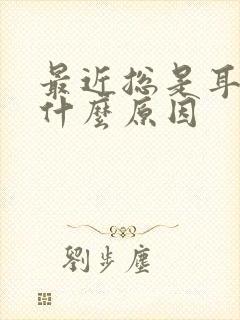 最近总是耳
什麼原因
劉步塵